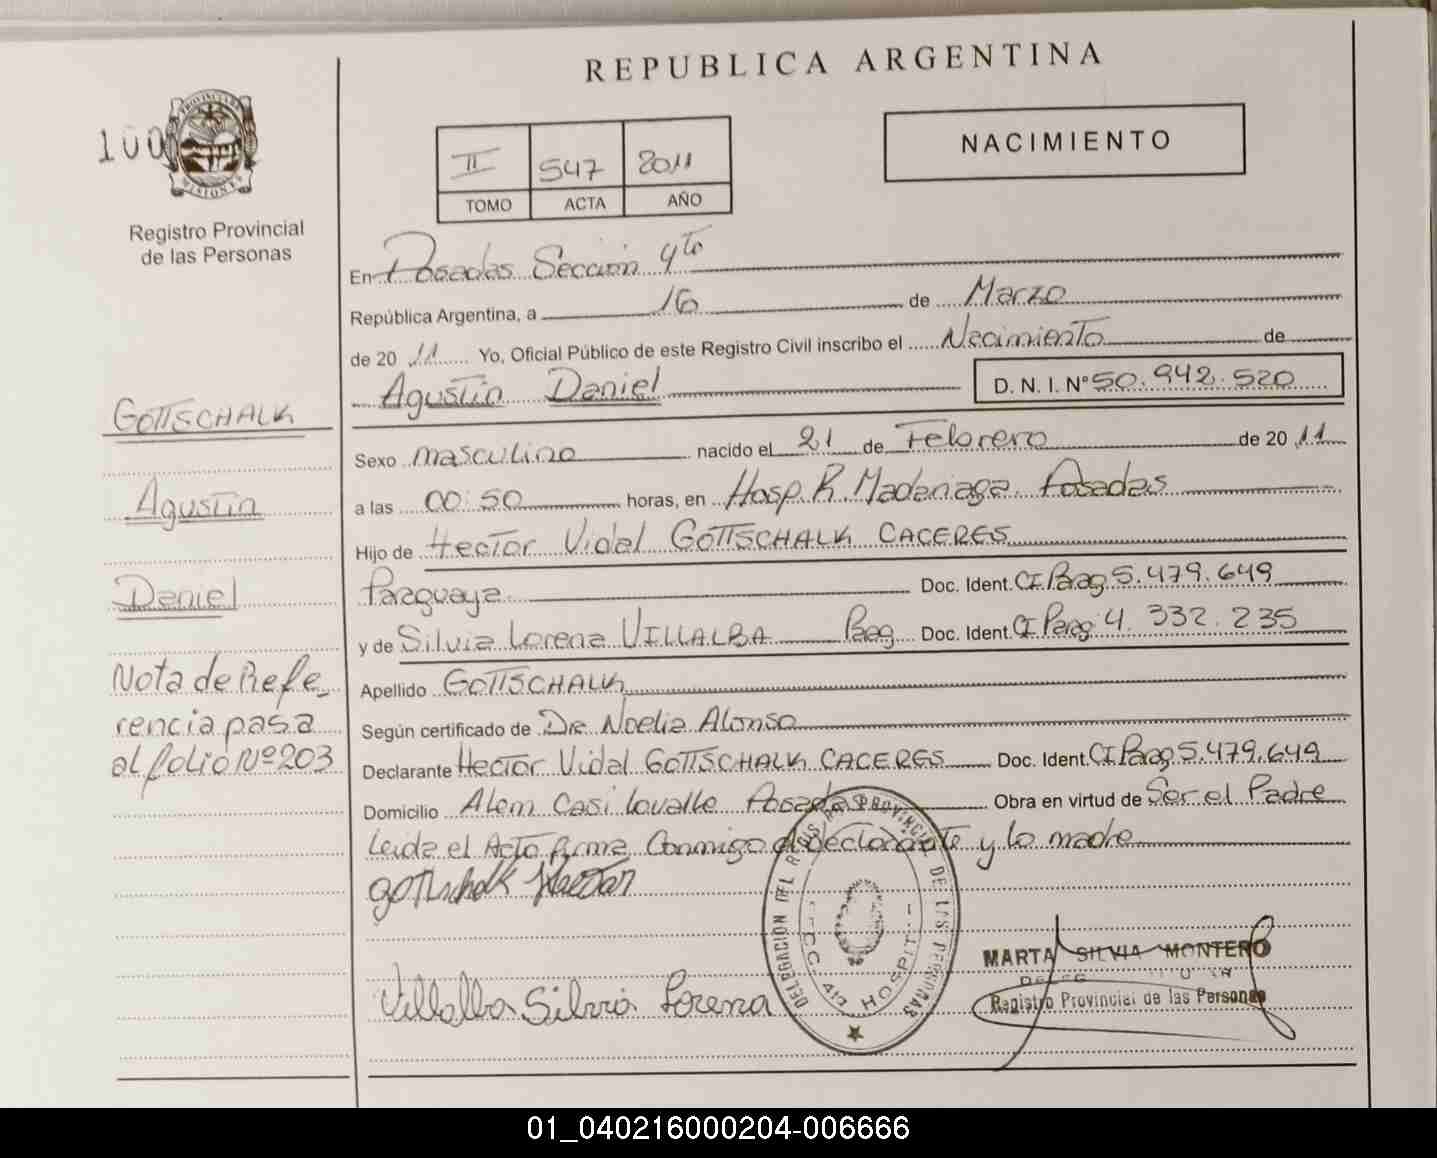 REPUBLICA ARGENTINA
100
PROVINCIA DE
MISIONES
Registro Provincial
de las Personas
II 547 2011
TOMO ACTA AÑO
NACIMIENTO
En Posadas Sección 4to
República Argentina, a 16 de Marzo
de 20 11 Yo, Oficial Público de este Registro Civil inscribo el Nacimiento de
Agustin Daniel D. N. I. Nº 50.942.520
GOTTSCHALK
Agustin
Daniel
Nota de Refe_
rencia pasa
al folio Nº 203
Sexo masculino nacido el 21 de Febrero de 20 11
a las 00:50 horas, en Hosp. R. Madariaga Posadas
Hijo de Hector Vidal GOTTSCHALK CACERES
Paraguaya Doc. Ident. CI Parag 5.479.649
y de Silvia Lorena VILLALBA Parag Doc. Ident. CI Parag 4.332.235
Apellido GOTTSCHALK
Según certificado de Dra Noelia Alonso
Declarante Hector Vidal GOTTSCHALK CACERES Doc. Ident. CI Parag 5.479.649
Domicilio Alem Casi Lavalle Posadas Obra en virtud de Ser el Padre
Leida el Acta firma Conmigo el declarante y la madre
Gottschalk Hector
Villalba Silvia Lorena
DELEGACION DEL REGISTRO PROVINCIAL DE LAS PERSONAS
HOSPIT
MARTA SILVIA MONTERO
Registro Provincial de las Personas
01_040216000204-006666